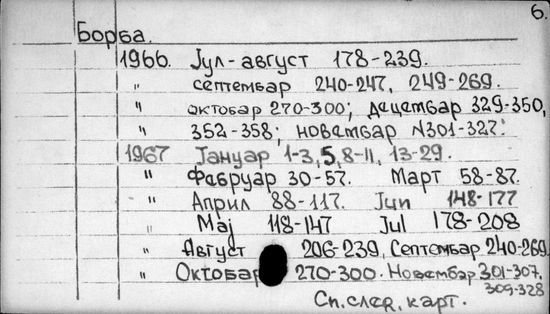 6.
Борба.
1966. Јул-август 178-239.
" септембар 240-247, 249-269.
" октобар 270-300; децембар 329-350,
" 352-358; новембар N301-327.
1967 Јануар 1-3, 5, 8-11, 13-29.
" Фебруар 30-57. Март 58-87.
" Април 88-117. Јун 148-177
Мај 118-147 Jul 178-208
" Август 206-239, Септембар 240-269.
" Октобар 270-300. Новембар 301-307,
309-328
Сп. след. карт.